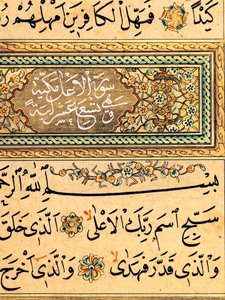 كَيْدًا فَمَهِّلِ الْكَافِرِينَ أَمْهِلْهُمْ
سورة الاعلى مكية
وهي تسع عشر اية
بِسْمِ اللَّهِ
سَبِّحِ اسْمَ رَبِّكَ الْأَعْلَى الَّذِي خَلَقَ
وَالَّذِي قَدَّرَ فَهَدَى وَالَّذِي أَخْرَجَ